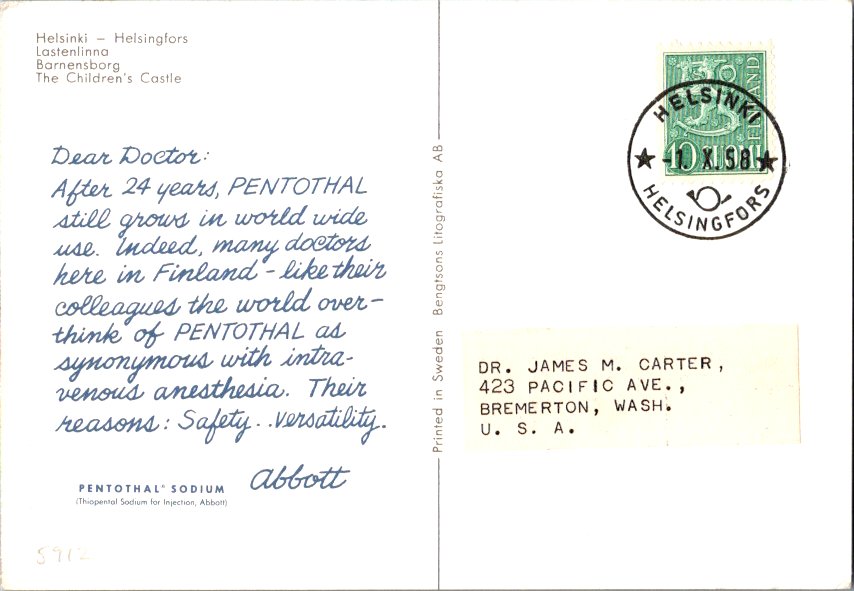 Helsinki – Helsingfors
Lastenlinna
Barnensborg
The Children's Castle
Dear Doctor:
After 24 years, PENTOTHAL
still grows in world wide
use. Indeed, many doctors
here in Finland - like their
colleagues the world over -
think of PENTOTHAL as
synonymous with intra-
venous anesthesia. Their
reasons: Safety...versatility.
Abbott
PENTOTHAL® SODIUM
(Thiopental Sodium for Injection, Abbott)
5912
Printed in Sweden Bengtsons Litografiska AB
SUOMI FINLAND
10
HELSINKI
-1. X.58
HELSINGFORS
DR. JAMES M. CARTER,
423 PACIFIC AVE.,
BREMERTON, WASH.
U. S. A.